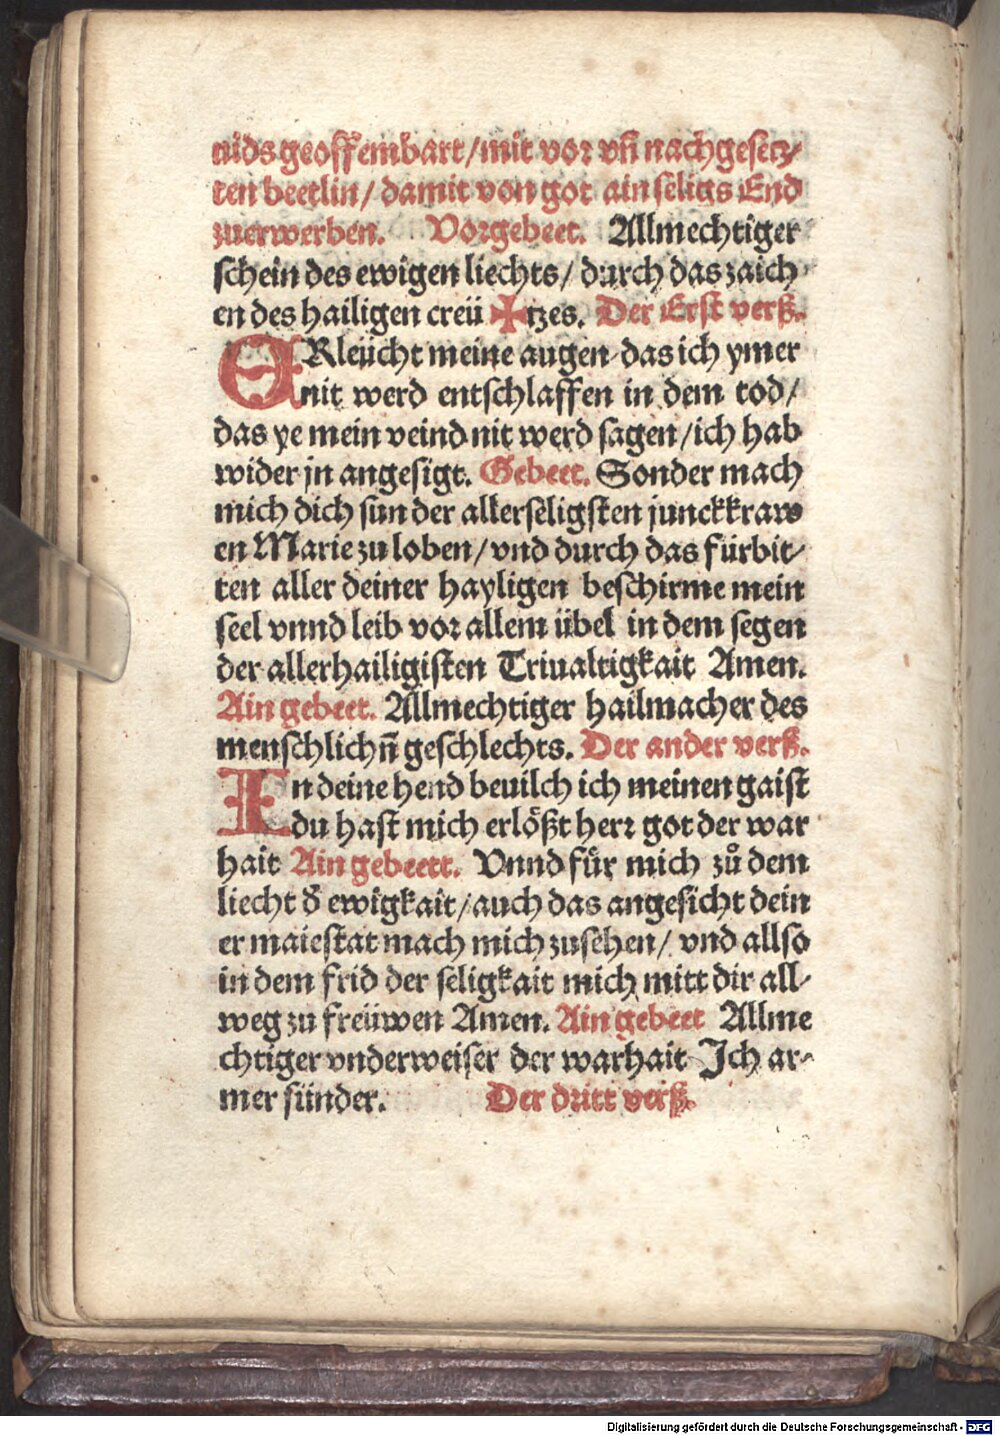 uids geoffembart/mit vor vñ nachgesetz⸗
ten beetlin/ damit von got ain seligs End
zuerwerben. Vorgebeet. Allmechtiger
schein des ewigen liechts/ durch das zaich
en des hailigen creü ✠ tzes. Der Erst verß.
ERleücht meine augen das ich ymer
nit werd entschlaffen in dem tod/
das ye mein veind nit werd sagen/ich hab
wider jn angesigt. Gebeet. Sonder mach
mich dich sun der allerseligsten junckkraw
en Marie zu loben/vnd durch das fürbit⸗
ten aller deiner hayligen beschirme mein
seel vnnd leib vor allem übel in dem segen
der allerhailigisten Triualtigkait Amen.
Ain gebeet. Allmechtiger hailmacher des
menschlichñ geschlechts. Der ander verß.
In deine hend beuilch ich meinen gaist
du hast mich erlößt herr got der war
hait Ain gebeett. Vnnd für mich zů dem
liecht d̄ ewigkait/auch das angesicht dein
er maiestat mach mich zusehen/ vnd allso
in dem frid der seligkait mich mitt dir all⸗
weg zu freüwen Amen. Ain gebeet Allme
chtiger vnderweiser der warhait Ich ar⸗
mer sünder. Der dritt verß.
Digitalisierung gefördert durch die Deutsche Forschungsgemeinschaft - DFG